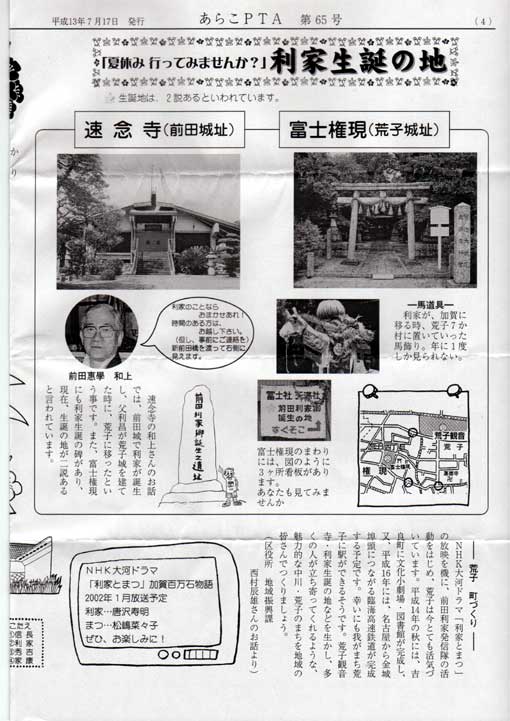 平成13年7月17日　発行
あらこPTA　第65号
(4)
「夏休み 行ってみませんか?」利家生誕の地
☆ 生誕地は、2説あるといわれています。
速念寺(前田城址)
富士権現(荒子城址)
利家のことなら
おまかせあれ!
時間のある方は、
お越し下さい。
(但し、事前にご連絡を)
新前田橋を渡って右側に
見えます。
前田惠學　和上
―馬道具―
利家が、加賀に
移る時、荒子7か
村に置いていった
馬飾り。年に1度
しか見られない。
速念寺の和上さんのお話
では、前田城で利家が誕生
し、父利昌が荒子城を建て
た時に、荒子に移ったとい
う事です。また、富士権現
にも利家生誕の碑があり、
現在、生誕の地が二説ある
と言われています。
前田利家卿誕生之遺址
富士社 天満社
前田利家卿
誕生の地
すぐそこ
富士権現のまわり
には、図のように
3ヶ所看板があり
ます。
あなたも見てみま
せんか
荒子観音
荒子
権現
NHK大河ドラマ
「利家とまつ」加賀百万石物語
2002年1月放送予定
利家…唐沢寿明
まつ…松嶋菜々子
ぜひ、お楽しみに!
荒子　町づくり
NHK大河ドラマ「利家とまつ」
の放映を機に、前田利家発信隊の活
動をはじめ、荒子は今とても活気づ
いています。平成14年の秋には、吉
良町に文化小劇場・図書館が完成し、
又、平成16年には、名古屋から金城
埠頭につながる臨海高速鉄道が完成
する予定です。幸いにも我がまち荒
子に駅ができるそうです。荒子観音
寺・利家生誕の地などを生かし、多
くの人が立ち寄ってくれるような、
魅力的な中川・荒子のまちを地域の
皆さんでつくりましょう。
(区役所　地域振興課
西村辰雄さんのお話より)
こたえ
①信長
②利家
③秀吉
④家康